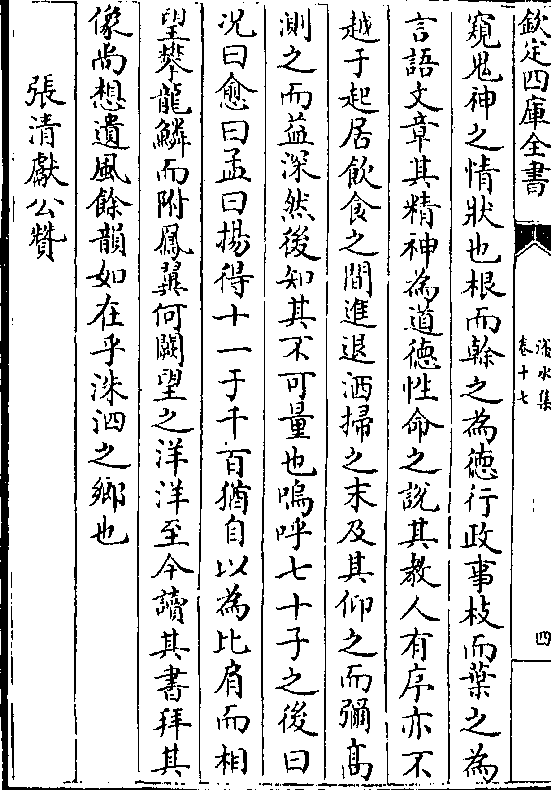 欽定四庫全書
滏水集
卷十七
四
窺鬼神之情狀也根而榦之為徳行政事枝而葉之為
言語文章其精神為道徳性命之說其教人有序亦不
越于起居飲食之間進退洒掃之末及其仰之而彌髙
測之而益深然後知其不可量也嗚呼七十子之後曰
况曰愈曰孟曰揚得十一于千百猶自以為比肩而相
望攀龍鱗而附鳳翼何闕望之洋洋至今讀其書拜其
像尚想遺風餘韻如在乎洙泗之鄉也
張清獻公贊